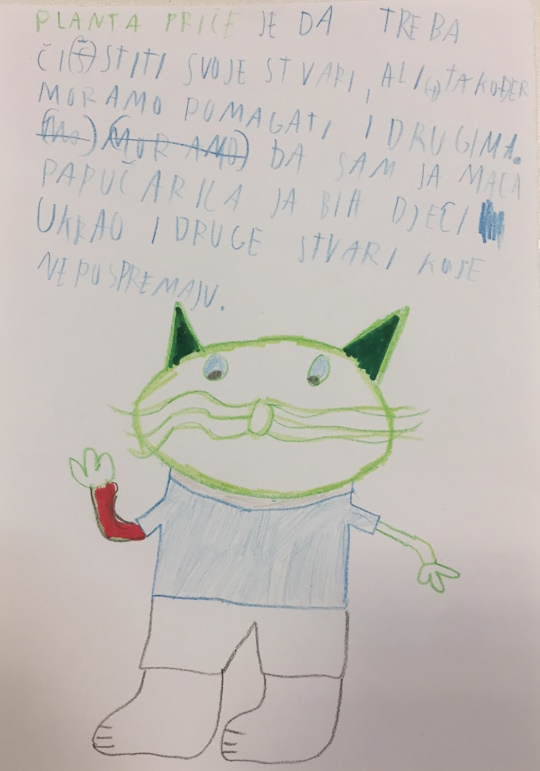 PLANTA PRIČE JE DA TREBA
ČI(Š)STITI SVOJE STVARI, ALI TAKOĐER
MORAMO POMAGATI I DRUGIMA.
(MO) (MORAMO) DA SAM JA MACA
PAPUČARICA JA BIH DJECI
UKRAO I DRUGE STVARI KOJE
NEPOSPREMAJU.